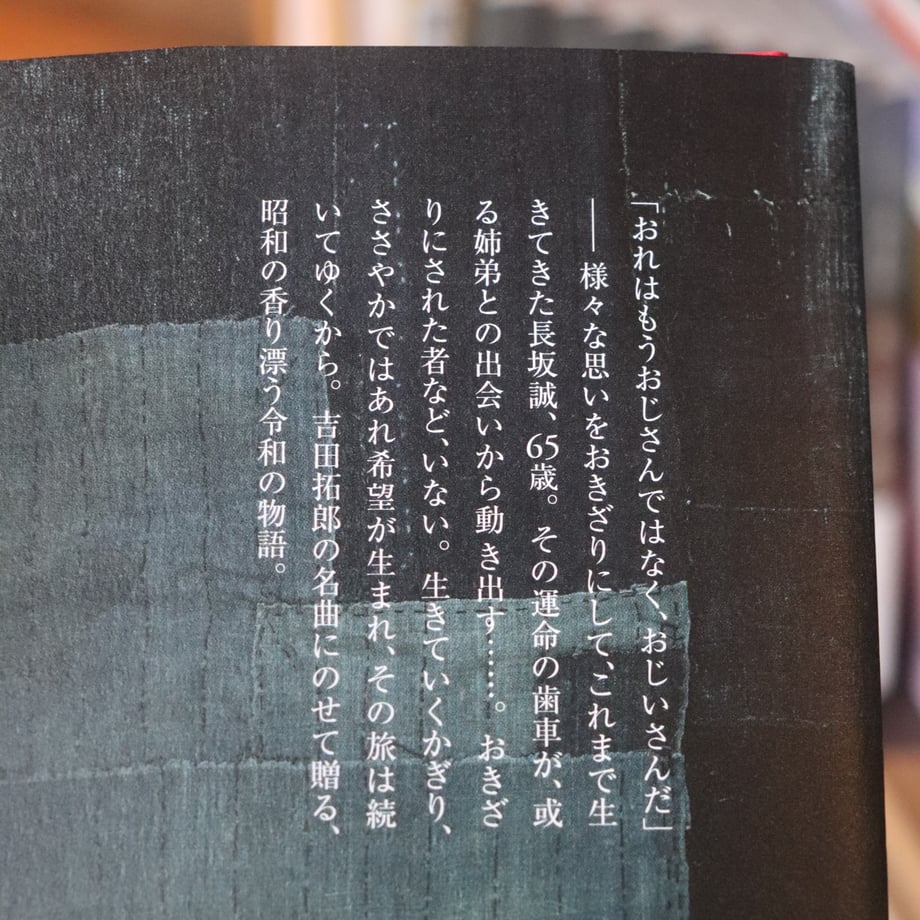 「おれはもうおじさんではなく、おじいさんだ」
――様々な思いをおきざりにして、これまで生
きてきた長坂誠、65歳。その運命の歯車が、或
る姉弟との出会いから動き出す……。おきざ
りにされた者など、いない。生きていくかぎり、
ささやかではあれ希望が生まれ、その旅は続
いてゆくから。吉田拓郎の名曲にのせて贈る、
昭和の香り漂う令和の物語。